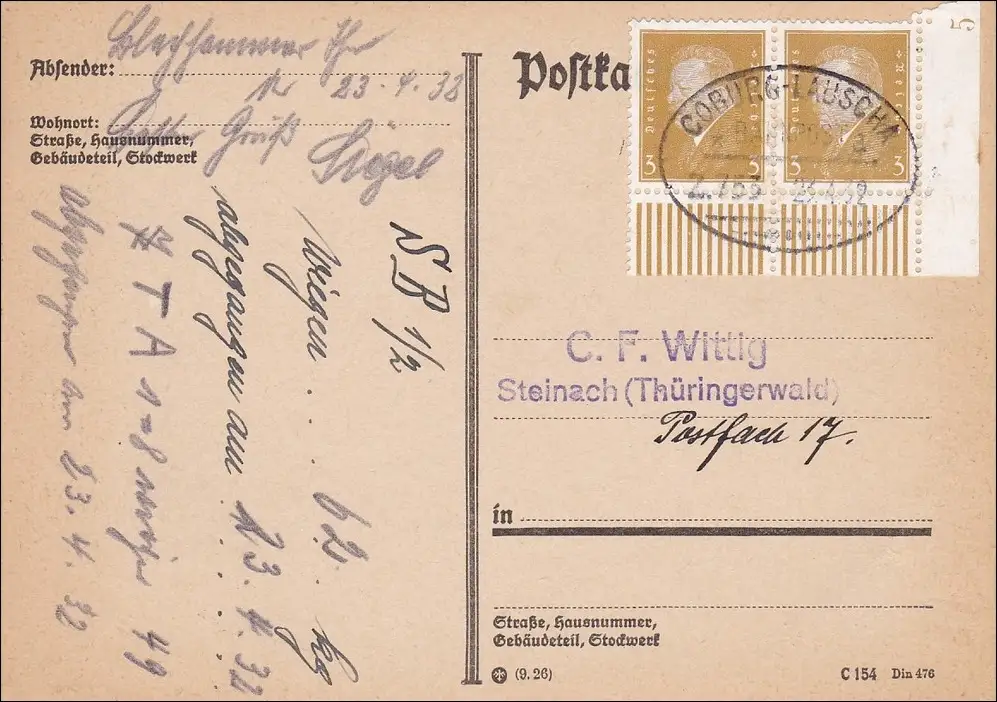 Blechhammer Thr
Absender:
23. 4. 32
Wohnort:
Straße, Hausnummer,
Gebäudeteil, Stockwerk
Gruß
Siegel
SB 1/2
Wiegen . . . . 62. kg
abgegangen am 23. 4. 32
TA 49
am 23. 4. 32
Postka
5
Deutsches Deutsches
3 3
COBURG-LAUSCHA
BAHNPOST
Z. 755 23.4.32
C. F. Wittig
Steinach (Thüringerwald)
Postfach 17.
in
Straße, Hausnummer,
Gebäudeteil, Stockwerk
(9. 26)
C 154 Din 476